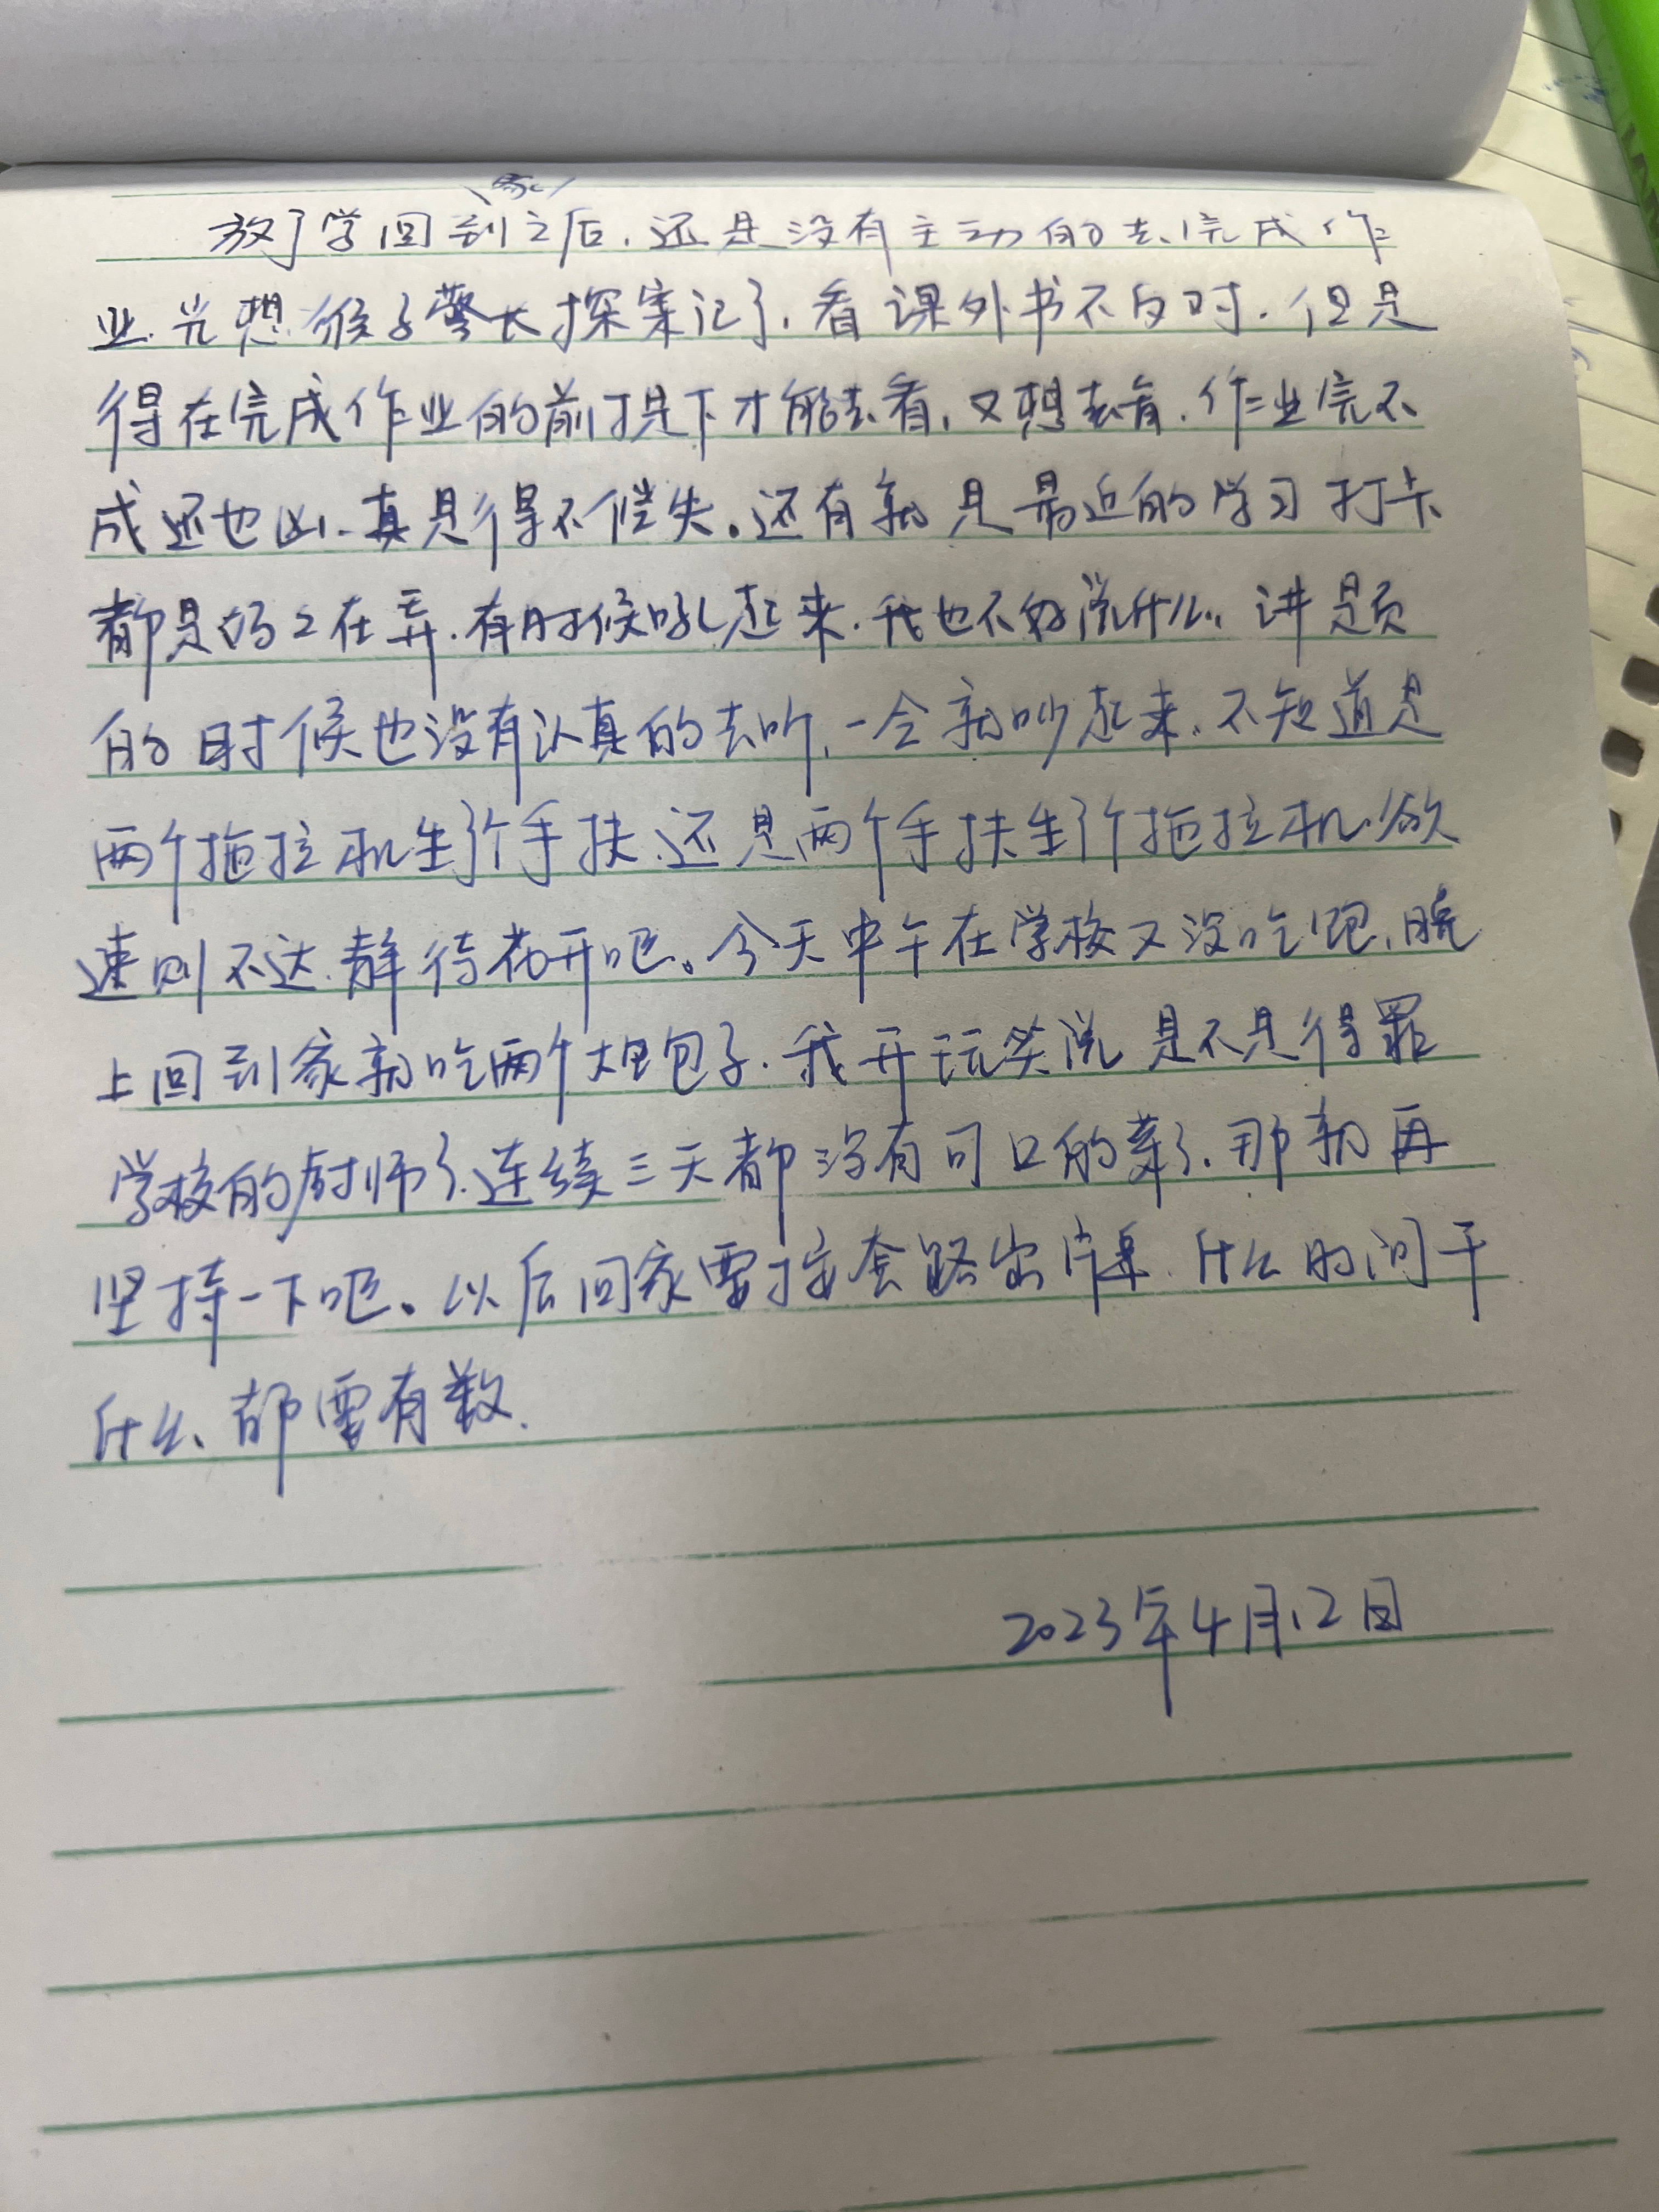 放了学回到家之后，还是没有主动的去完成作
业，光想猴子警长探案记了，看课外书不反对，但是
得在完成作业的前提下才能去看，又想去看，作业完不
成还也凶，真是得不偿失。还有就是最近的学习打卡
都是妈妈在弄，有时候吼起来，我也不好说什么，讲题
的时候也没有认真的去听，一会就吵起来，不知道是
两个拖拉机生个手扶，还是两个手扶生个拖拉机，欲
速则不达，静待花开吧。今天中午在学校又没吃饱，晚
上回到家就吃两个大包子，我开玩笑说是不是得罪
学校的厨师了，连续三天都没有可口的菜了，那就再
坚持一下吧。以后回家要按套路出牌，什么时间干
什么，都要有数.
2023年4月12日